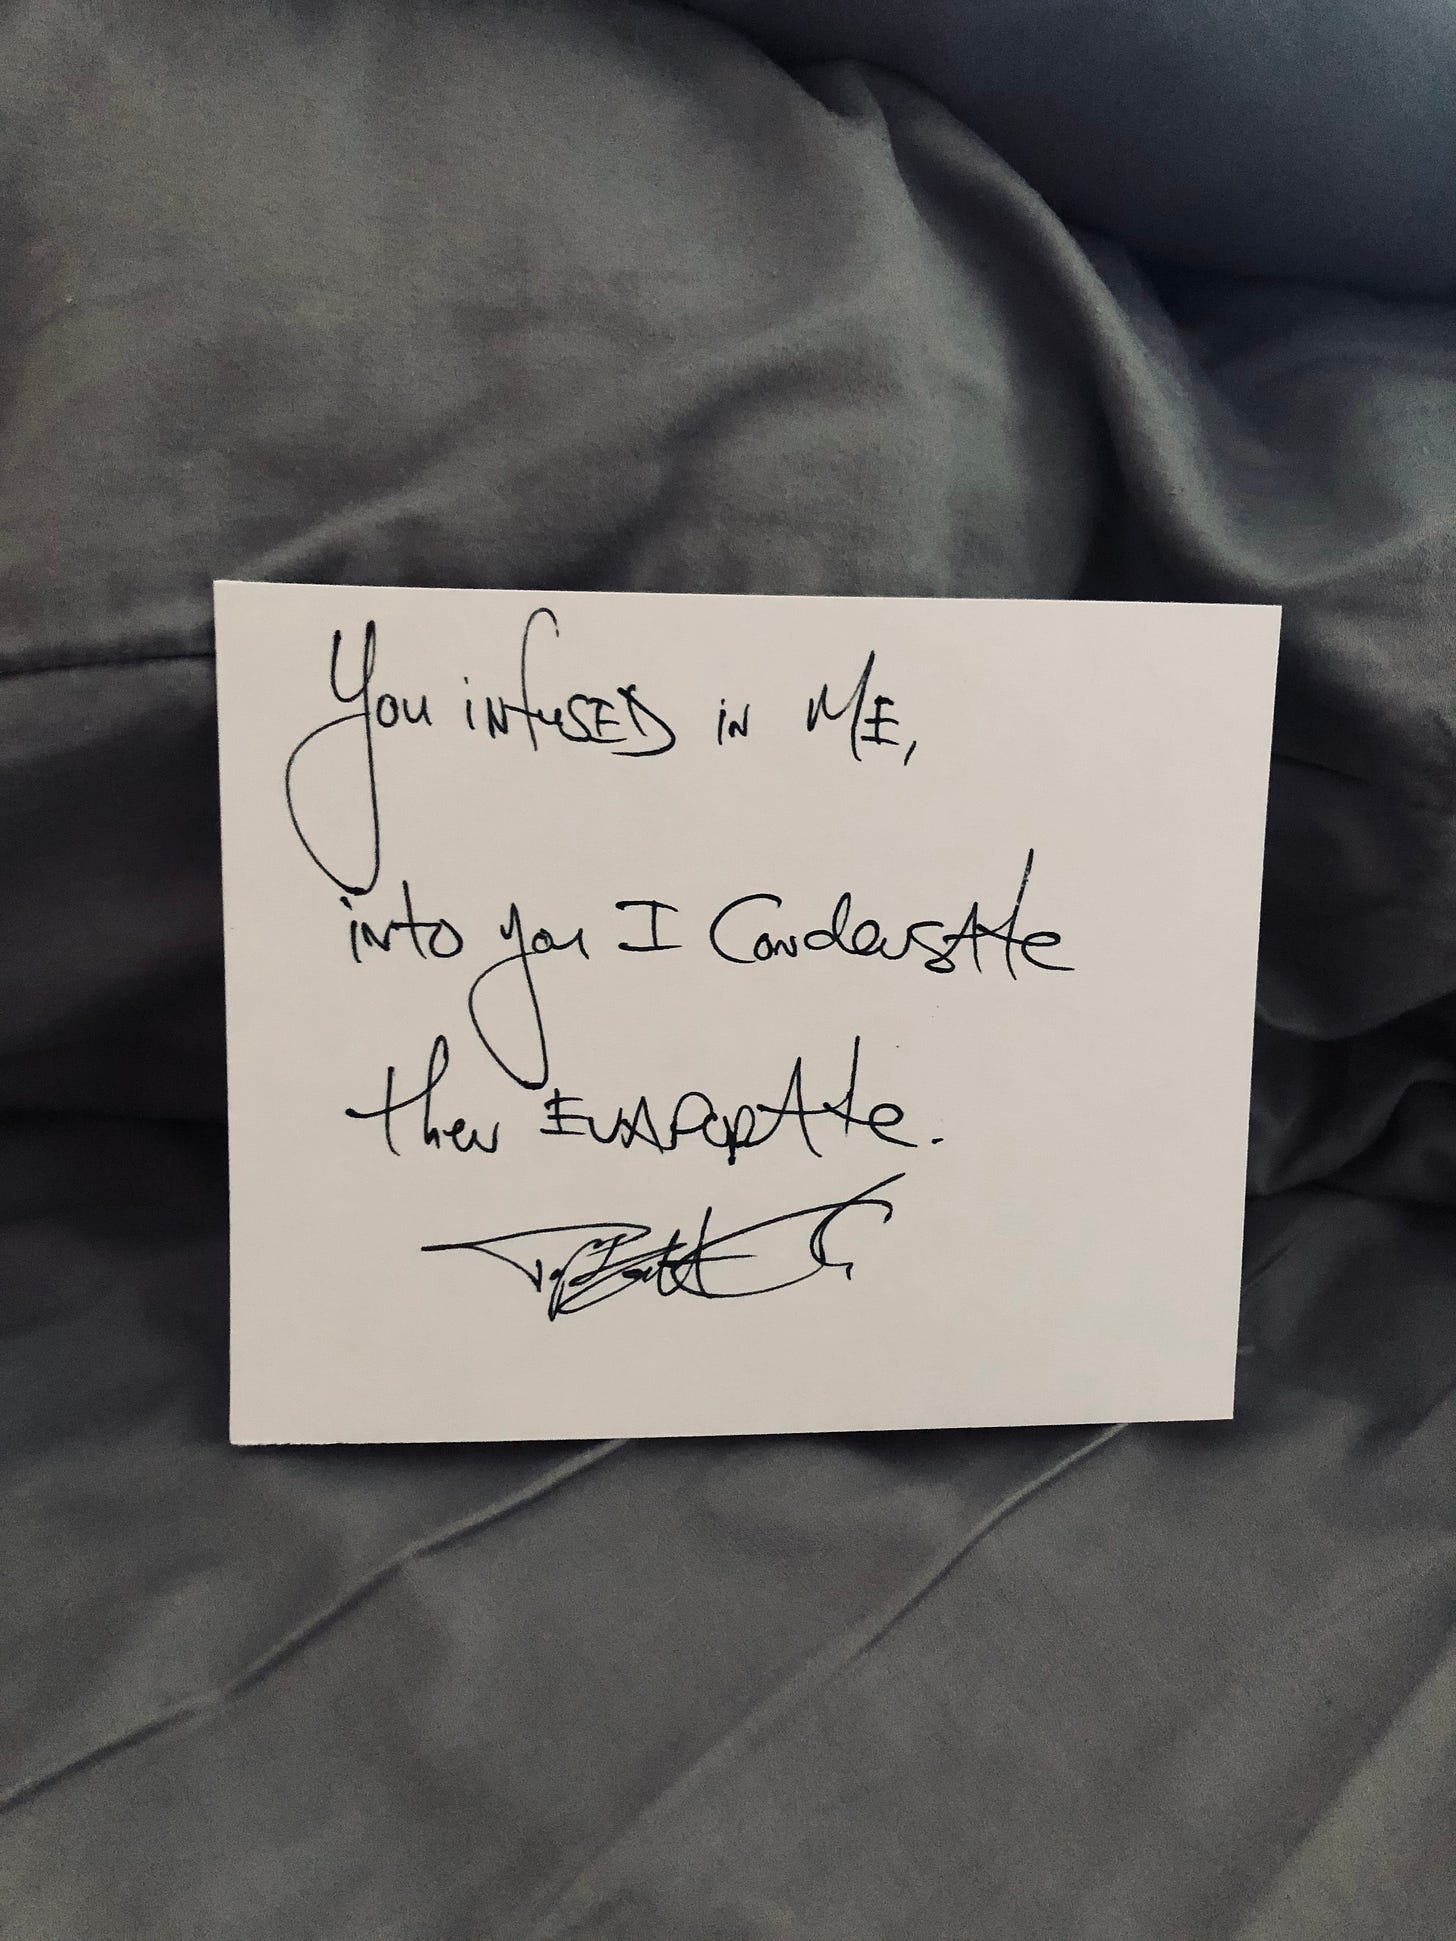 You infused in ME,
into you I Condensate
then EvAporAte.